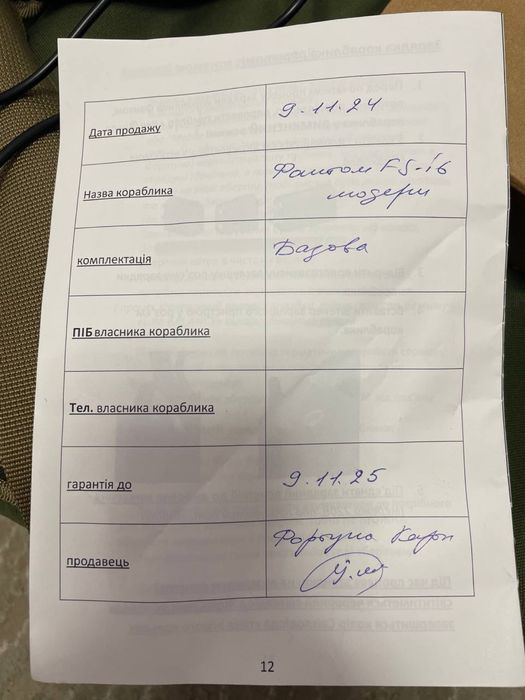 Дата продажу
9.11.24
Назва кораблика
Фантом FS-i6
модерн
комплектація
Базова
ПІБ власника кораблика
Тел. власника кораблика
гарантія до
9.11.25
продавець
Фортуна Карп
12